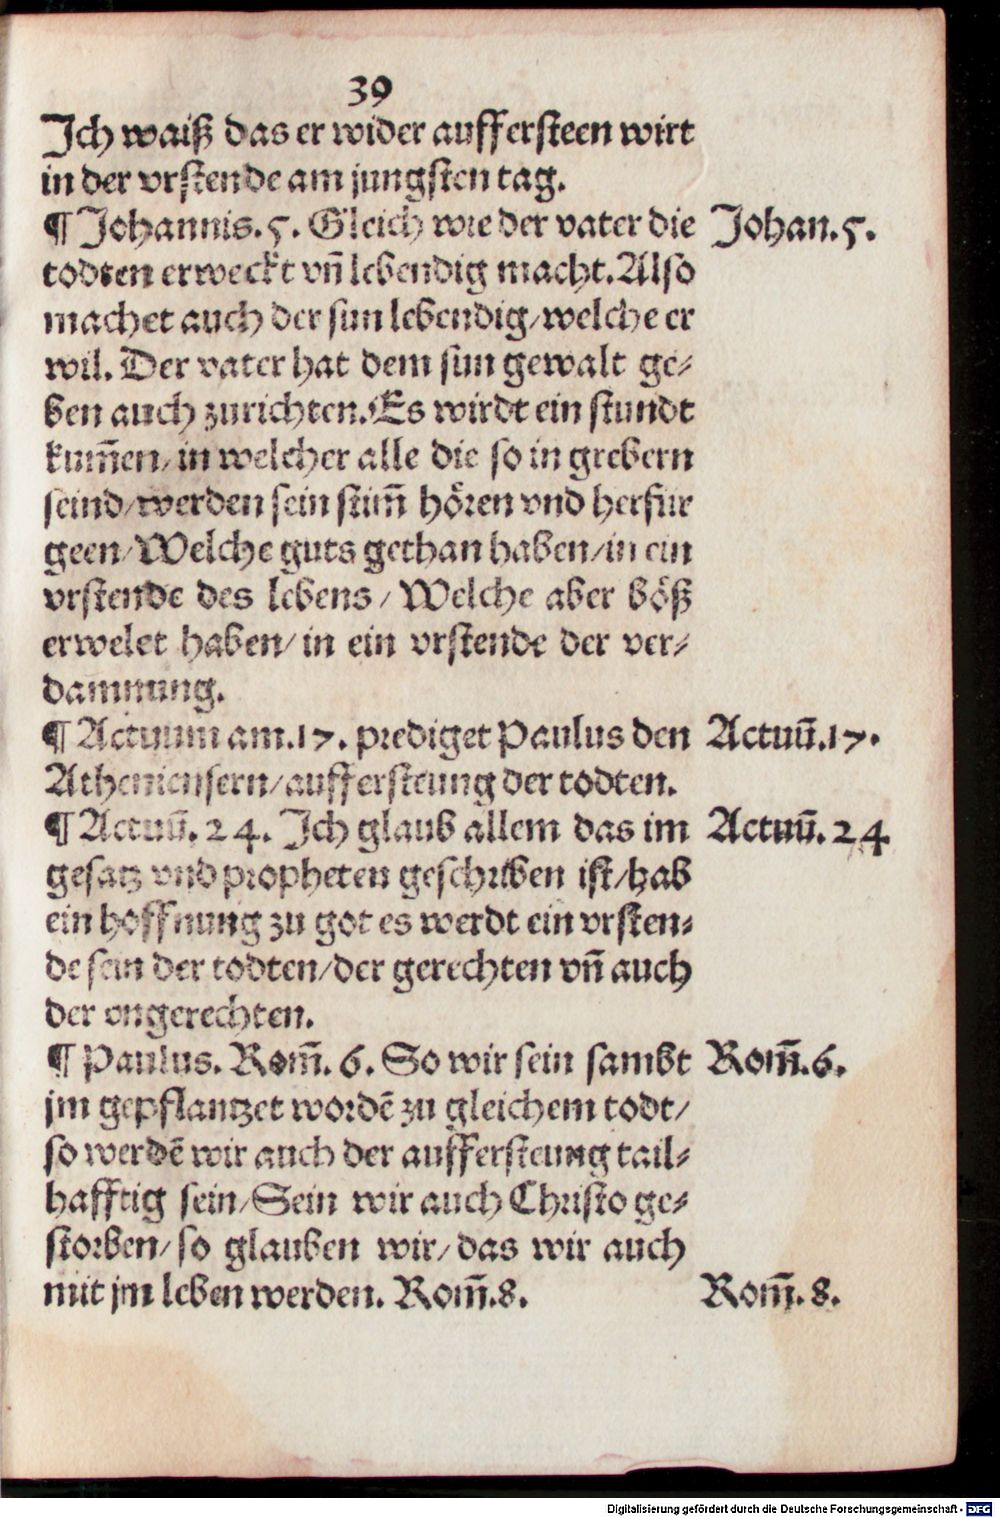 39
Ich waiß das er wider aufferſteen wirt
in der vrſtende am jungſten tag.
¶ Johannis. 5. Gleich wie der vater die
Johan. 5.
todten erweckt vn̄ lebendig macht. Alſo
machet auch der ſun lebendig/ welche er
wil. Der vater hat dem ſun gewalt ge⸗
ben auch zurichten. Es wirdt ein ſtundt
kum̄en/ in welcher alle die ſo in grebern
ſeind/ werden ſein ſtim̄ hören vnd herfür
geen/ Welche guts gethan haben/ in ein
vrſtende des lebens/ Welche aber böß
erwelet haben/ in ein vrſtende der ver⸗
damnung.
¶ Actuum am. 17. prediget Paulus den
Actuū. 17.
Athenienſern/ aufferſteung der todten.
¶ Actuū. 24. Ich glaub allem das im
Actuū. 24
geſatz vnd propheten geſchriben iſt/ hab
ein hoffnung zu got es werdt ein vrſten⸗
de ſein der todten/ der gerechten vn̄ auch
der vngerechten.
¶ Paulus. Rom̄. 6. So wir ſein ſambt
Rom̄. 6.
jm gepflantzet wordē zu gleichem todt/
ſo werdē wir auch der aufferſteung tail⸗
hafftig ſein/ Sein wir auch Chriſto ge⸗
ſtorben/ ſo glauben wir/ das wir auch
mit jm leben werden. Rom̄. 8.
Rom̄. 8.
Digitalisierung gefördert durch die Deutsche Forschungsgemeinschaft - DFG